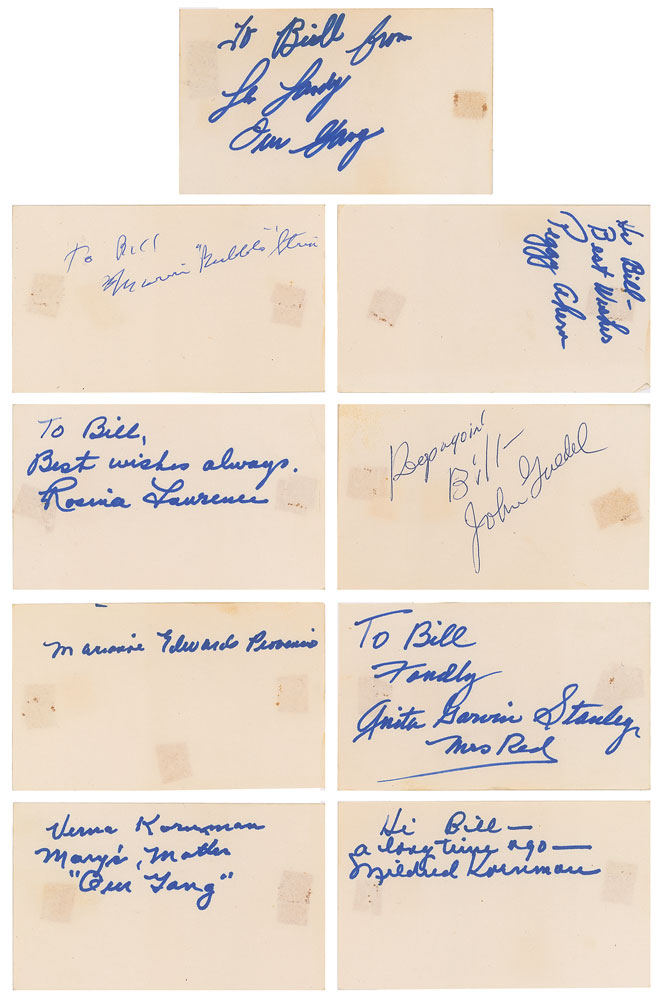 To Bill from
Our Gang
To Bill
Marvin "Bubbles" Strin
Hi Bill-
Best Wishes
Peggy Ahern
To Bill,
Best wishes always.
Rosina Lawrence
Bill-
John Guedel
Marianne Edwards
To Bill
Fondly
Anita Garvin Stanley
Mrs Red
Verna Kornman
Mary's, Mother
"Our Gang"
Hi Bill-
a long time ago-
Mildred Kornman